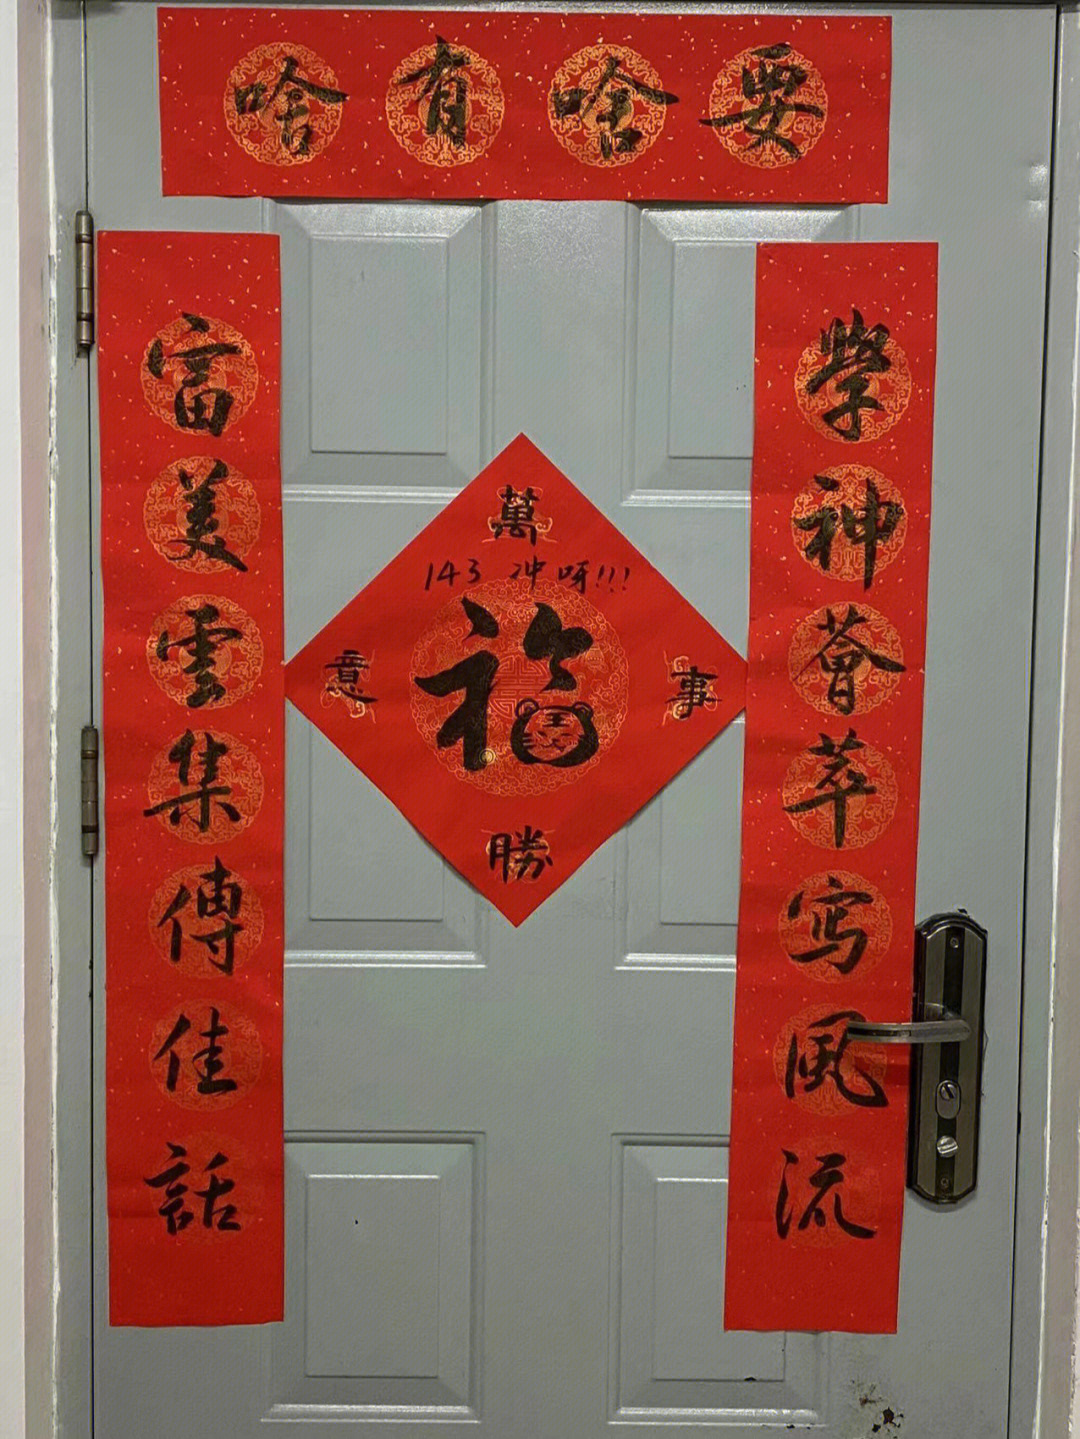 要啥有啥
學神薈萃写風流
富美雲集傳佳話
萬事勝意
143 冲呀!!!
福
王